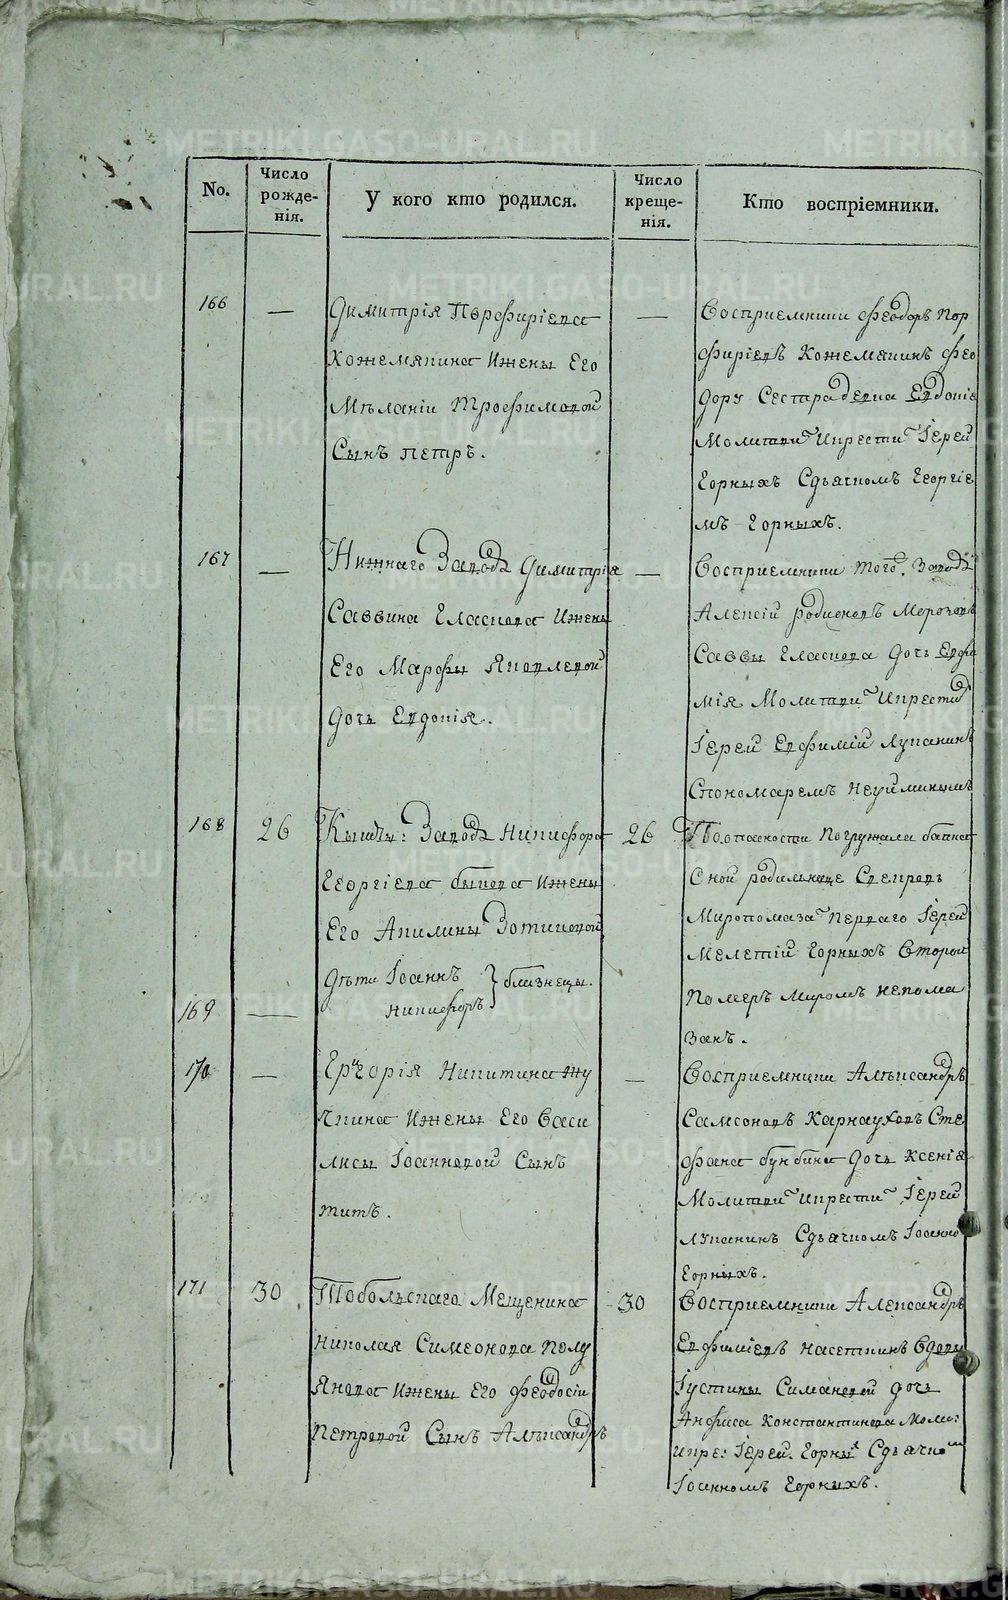 METRIKI.GASO-URAL.RU
No.
Число рожде-нія.
У кого кто родился.
Число креще-нія.
Кто воспріемники.
166
—
Димитрія Порфиріева
Кожемякина Ижены Его
Мѣланіи Трофимовой
Сынъ Петръ.
—
Восприемники Феодоръ Пор
фиріевъ Кожемякинъ Фео
дору Сестра девка Евдокіе
Молитви Икрести Іерей
Горныхъ Сдьячкомъ Георгіе
мъ Горныхъ.
167
—
Нижнаго Завода Димитрія
Саввина Гласкова Ижены
Его Марфы Яковлевой
Дочь Евдокія.
—
Восприемники того. Завода
Алексій родионовъ Мероховъ
Саввы Гласкова Дочь Евфи
мія Молитви Икрести
Іерей Евфимій Лупанинъ
Спономаремъ Неуйминымъ
168
26
Кышты: Завода Никифора
Георгіева быкова Ижены
Его Акилины Зотиковой
Дѣти Іоаннъ } близнецы.
Никифоръ
26
Поопасности Погружала бабка
Сной родильнице Слепревъ
Миропомаза Перваго Іерей
Мелетій Горныхъ Второй
Померъ Миромъ непома
занъ.
169
—
170
—
Григорія Никитина Жу
лкина Ижены Его Васи
лисы Іоанновой Сынъ
титъ.
—
Восприемники Алѣксандръ
Самсоновъ Карнауховъ Сте
фана бунбина Дочь Ксенія
Молитви Икрести Іерей
Лупанинъ Сдьячкомъ Іоанно
Горныхъ.
171
30
Тобольскаго Мещенина
Николая Симеонова Полу
Янова Ижены Его Феодосіи
Петровой Сынъ Алѣксандръ
30
Восприемники Александръ
Евфиміевъ Насеткинъ Вдовы
Іустины Симановой дочь
Анфиса Константинова Моли:
Икре: Іерей. Горны Сдьячко
Іоанномъ Горныхъ.